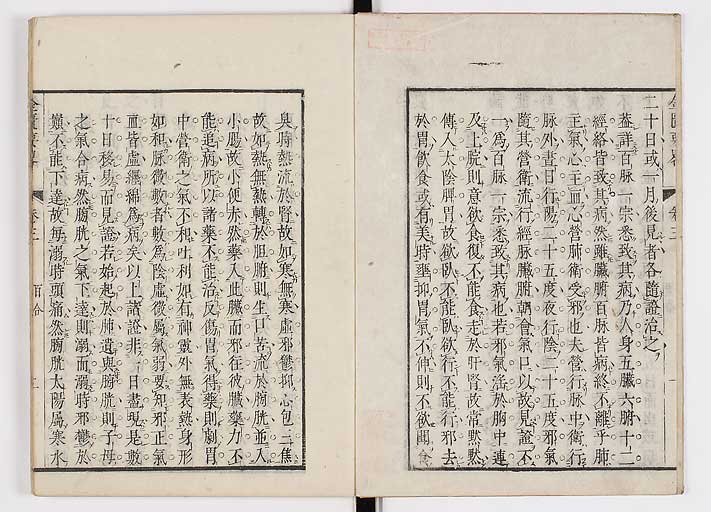 二十日或一月後見者各隨證治之
蓋詳百脉一宗悉致其病乃人身五臟六腑十二
經絡皆致其病然雖臟腑百脉皆病終不離乎肺
正氣心主血心營肺衛受邪也夫營行脉中衛行
脉外晝日行陽二十五度夜行陰二十五度邪氣
隨其營衛流行經脉臟腑朝會氣口以故見證不
一爲百脉一宗悉致其病也若邪氣淫於胸中連
及上脘則意欲食復不能食走於肝腎故常默默
傳入太陰脾胃故欲臥不能臥欲行不能行邪去
於胃飲食或有美時壅抑胃氣不伸則不欲聞食
臭時熱流於腎故如寒無寒虛邪鬱抑心包三焦
故如熱無熱轉於胆腑則生口苦流於胸胱並入
小腸故小便赤然藥入此臟而邪徃彼臟藥力不
能追病所以諸藥不能治反傷胃氣得藥則劇胃
中營衛之氣不和吐利如有神靈外無表熱身形
如和脉微數者數爲陰虛微屬氣弱要知邪正氣
血皆虛纒綿爲病矣以上諸證非一日盡現是數
十日移易而見證若始起於肺遺與胸胱則子母
之氣合病然胸胱之氣下達則溺而溺時邪鬱於
巔不能下達故每溺時頭痛然胸胱太陽屬寒水
卷三
百合
卷三